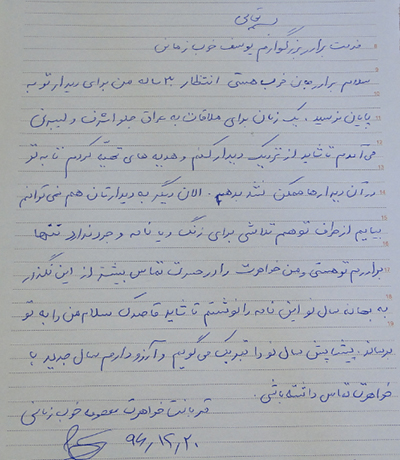 بسمه تعالی
خدمت برادر بزرگوارم یوسف خوب زمانی
سلام برادر جان خوب هستی انتظار ۳۰ ساله من برای دیدار تو به
پایان نرسید. یک زمان برای ملاقات به عراق جلو اشرف و لیبرتی
می آمدم تا شاید از نزدیک دیدار کنم و هدیه های تهیه کردم تا به تو
در آن دیدارها ممکن نشد بدهم. الان دیگر به دیدارتان هم نمی توانم
بیایم از طرف تو هم تلاشی برای زنگ و یا نامه وجود ندارد تنها
برادرم تو هستی و من خواهرت را در حسرت تماس بیشتر از این نگذار
به بهانه سال نو این نامه را نوشتم تا شاید قاصدک سلام من را به تو
برساند. پیشاپیش سال نو را تبریک می گویم و آرزو دارم سال جدید با
خواهرت تماس داشته باشی.
قربانت خواهرت معصومه خوب زمانی
۹۴/۱۲/۲۰